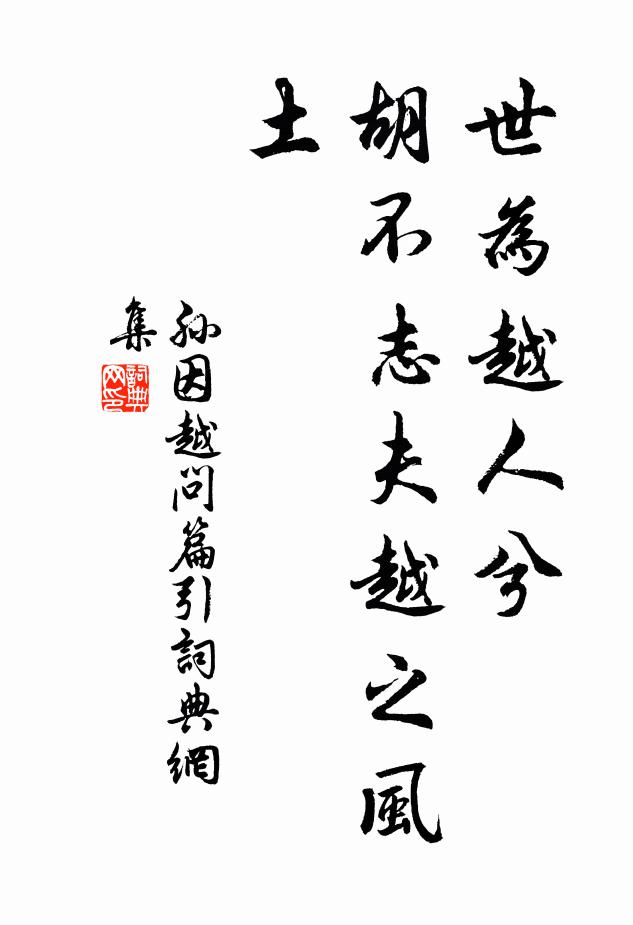 世為越人兮
胡不志夫越之風
土
孫因越問篇引詞典網
集
詞典
网印